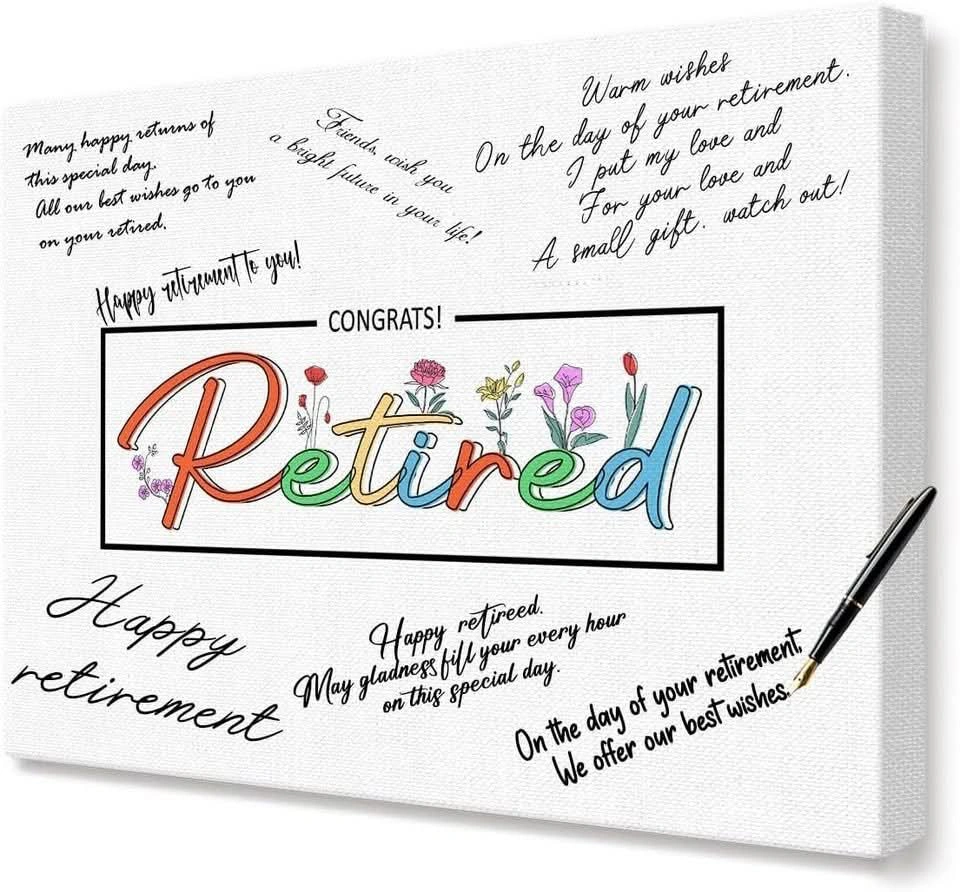 Many happy returns of
this special day.
All our best wishes go to you
on your retired.
Friends, wish you
a bright future in your life!
Warm wishes
On the day of your retirement.
I put my love and
For your love and
A small gift. watch out!
Happy retirement to you!
CONGRATS!
Retired
Happy
retirement
Happy retireed.
May gladness fill your every hour
on this special day.
On the day of your retirement,
We offer our best wishes.